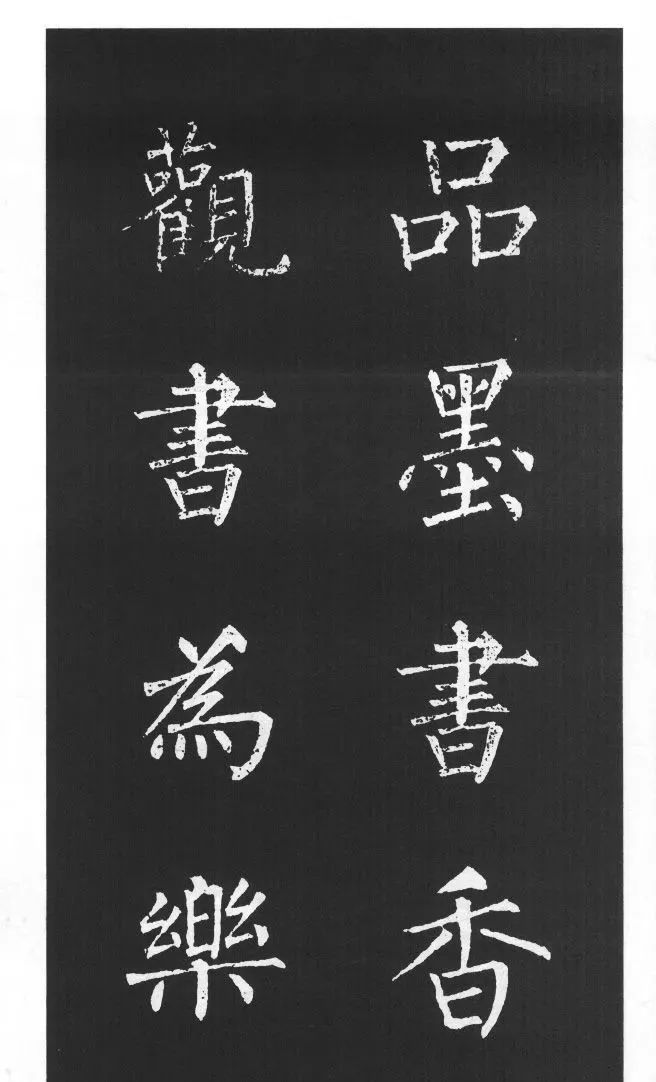 品墨書香
觀書為樂